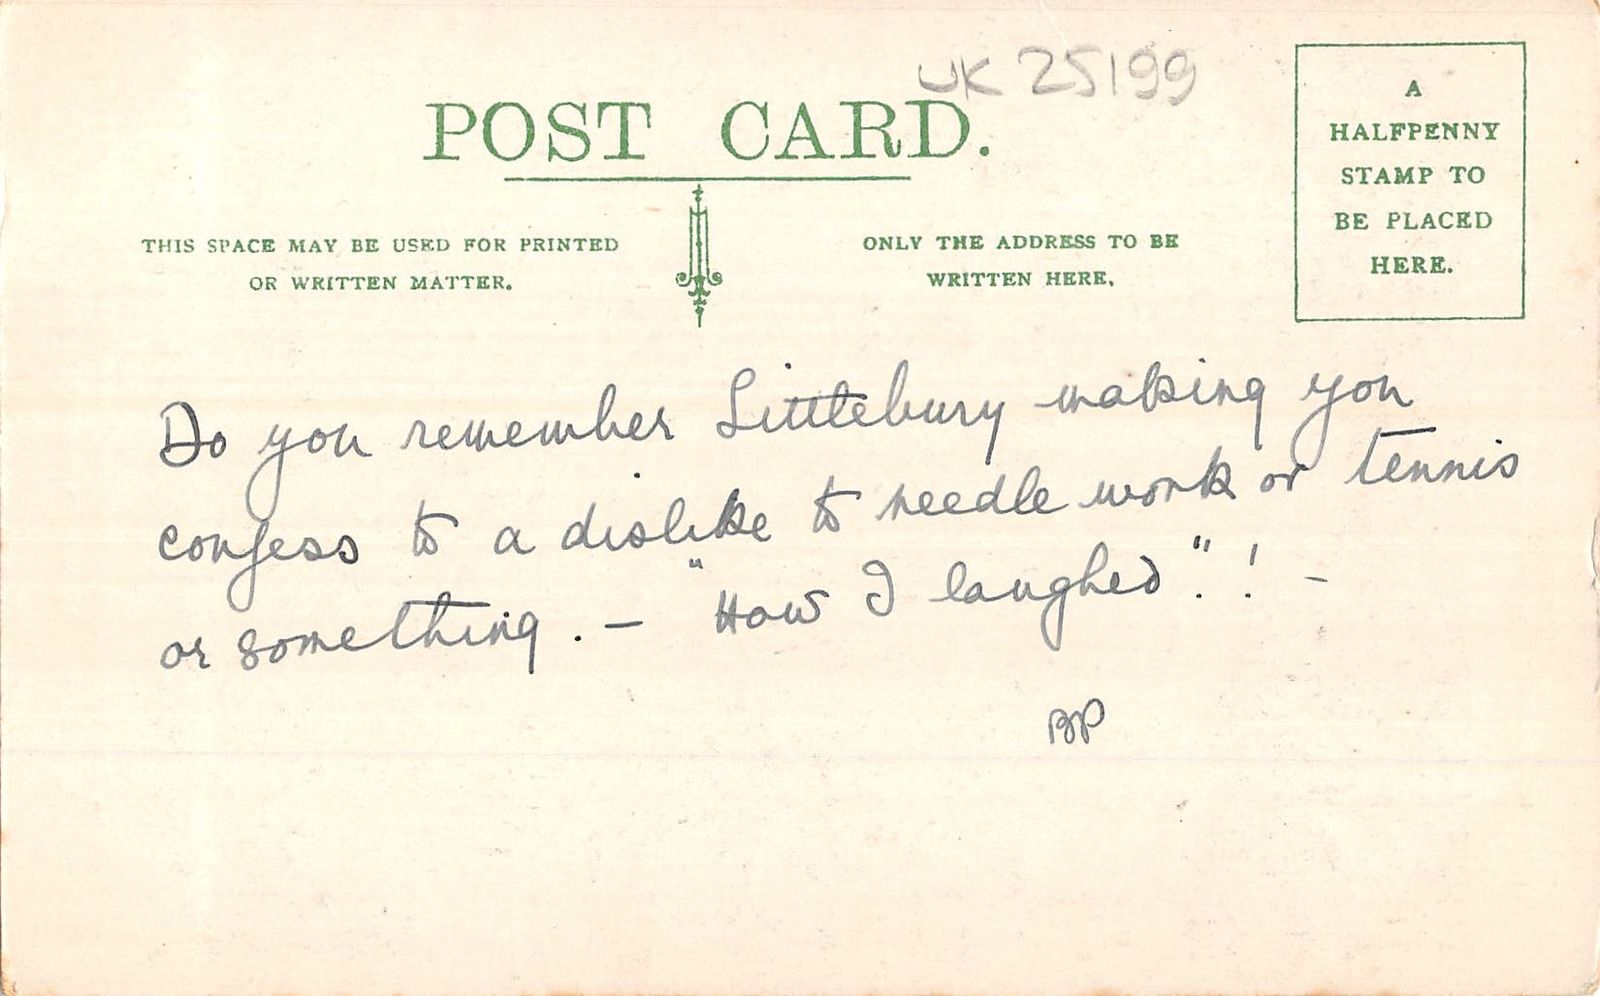 UK 25199
POST CARD.
THIS SPACE MAY BE USED FOR PRINTED
OR WRITTEN MATTER.
ONLY THE ADDRESS TO BE
WRITTEN HERE.
A
HALFPENNY
STAMP TO
BE PLACED
HERE.
Do you remember Littlebury making you
confess to a dislike to needle work or tennis
or something. – "How I laughed". ! –
BP